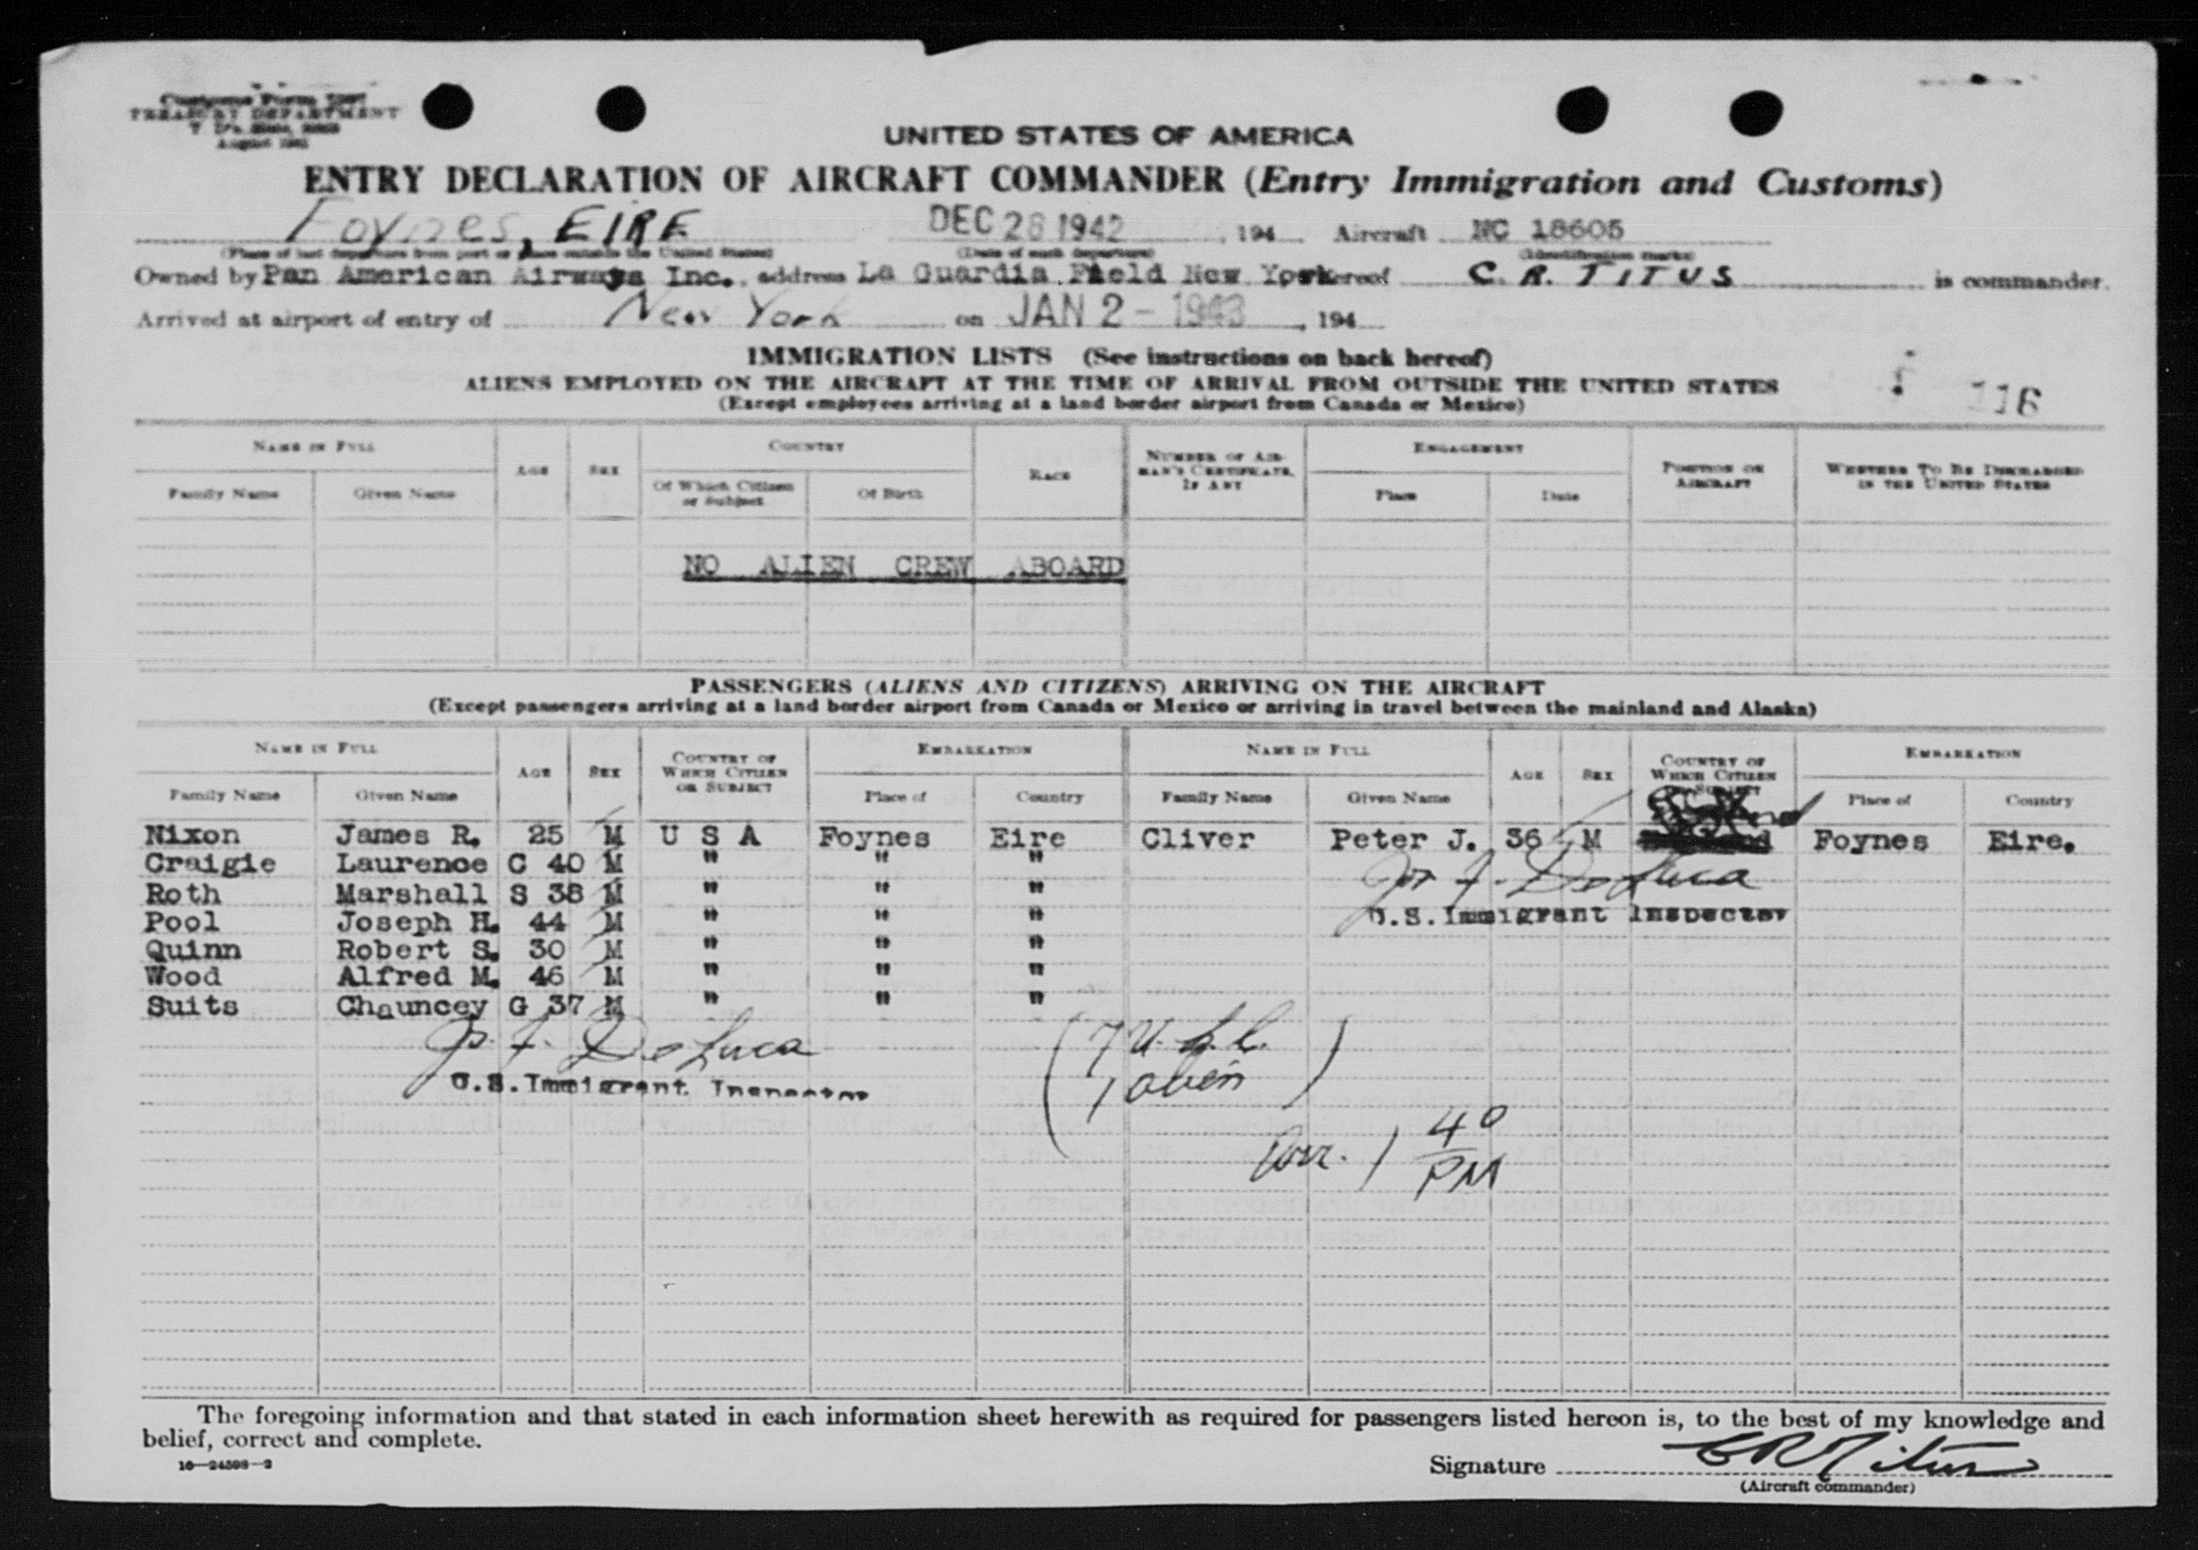 TREASURY DEPARTMENT
UNITED STATES OF AMERICA
ENTRY DECLARATION OF AIRCRAFT COMMANDER (Entry Immigration and Customs)
Foynes, EIRE DEC 28 1942, 194 Aircraft NC 18605
(Place of last departure from port or place outside the United States) (Date of such departure) (Identification marks)
Owned by Pan American Airways Inc., address La Guardia Field New York hereof C. R. TITUS is commander.
Arrived at airport of entry of New York on JAN 2 - 1943, 194
IMMIGRATION LISTS (See instructions on back hereof)
ALIENS EMPLOYED ON THE AIRCRAFT AT THE TIME OF ARRIVAL FROM OUTSIDE THE UNITED STATES
116
(Except employees arriving at a land border airport from Canada or Mexico)
NAME IN FULL AGE SEX COUNTRY RACE NUMBER OF AIRMAN'S CERTIFICATE, IF ANY ENGAGEMENT POSITION ON AIRCRAFT WHETHER TO BE DISCHARGED IN THE UNITED STATES
Family Name Given Name Of Which Citizen or Subject Of Birth Place Date
NO ALIEN CREW ABOARD
PASSENGERS (ALIENS AND CITIZENS) ARRIVING ON THE AIRCRAFT
(Except passengers arriving at a land border airport from Canada or Mexico or arriving in travel between the mainland and Alaska)
NAME IN FULL AGE SEX COUNTRY OF WHICH CITIZEN OR SUBJECT EMBARKATION NAME IN FULL AGE SEX COUNTRY OF WHICH CITIZEN EMBARKATION
Family Name Given Name Place of Country Family Name Given Name Place of Country
Nixon James R. 25 M U S A Foynes Eire Cliver Peter J. 36 M Foynes Eire.
Craigie Laurence C 40 M " " "
Roth Marshall S 38 M " " "
Pool Joseph H. 44 M " " "
Quinn Robert S. 30 M " " "
Wood Alfred M. 46 M " " "
Suits Chauncey G 37 M " " "
J. F. DeLuca
U.S. Immigrant Inspector
J. F. DeLuca
U.S. Immigrant Inspector
(7 U.S.C.
1 alien)
Arr. 1 40 PM
The foregoing information and that stated in each information sheet herewith as required for passengers listed hereon is, to the best of my knowledge and
belief, correct and complete.
16—24598-2
Signature C R Titus
(Aircraft commander)